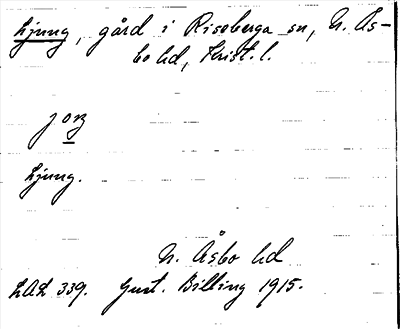 Ljung, gård i Riseberga sn, N. Ås-
bo hd, Krist. l.
Ljung.
N. Åsbo hd
LAL 339. Gust. Billing 1915.